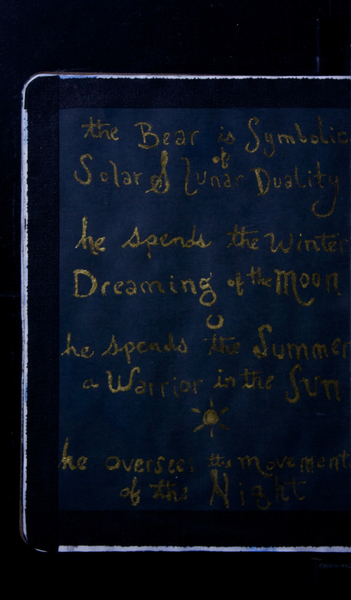 the Bear is Symbolic
of
Solar & Lunar Duality
he spends the Winter
Dreaming of the Moon
he spends the Summer
a Warrior in the Sun
he oversees the movement
of the Night